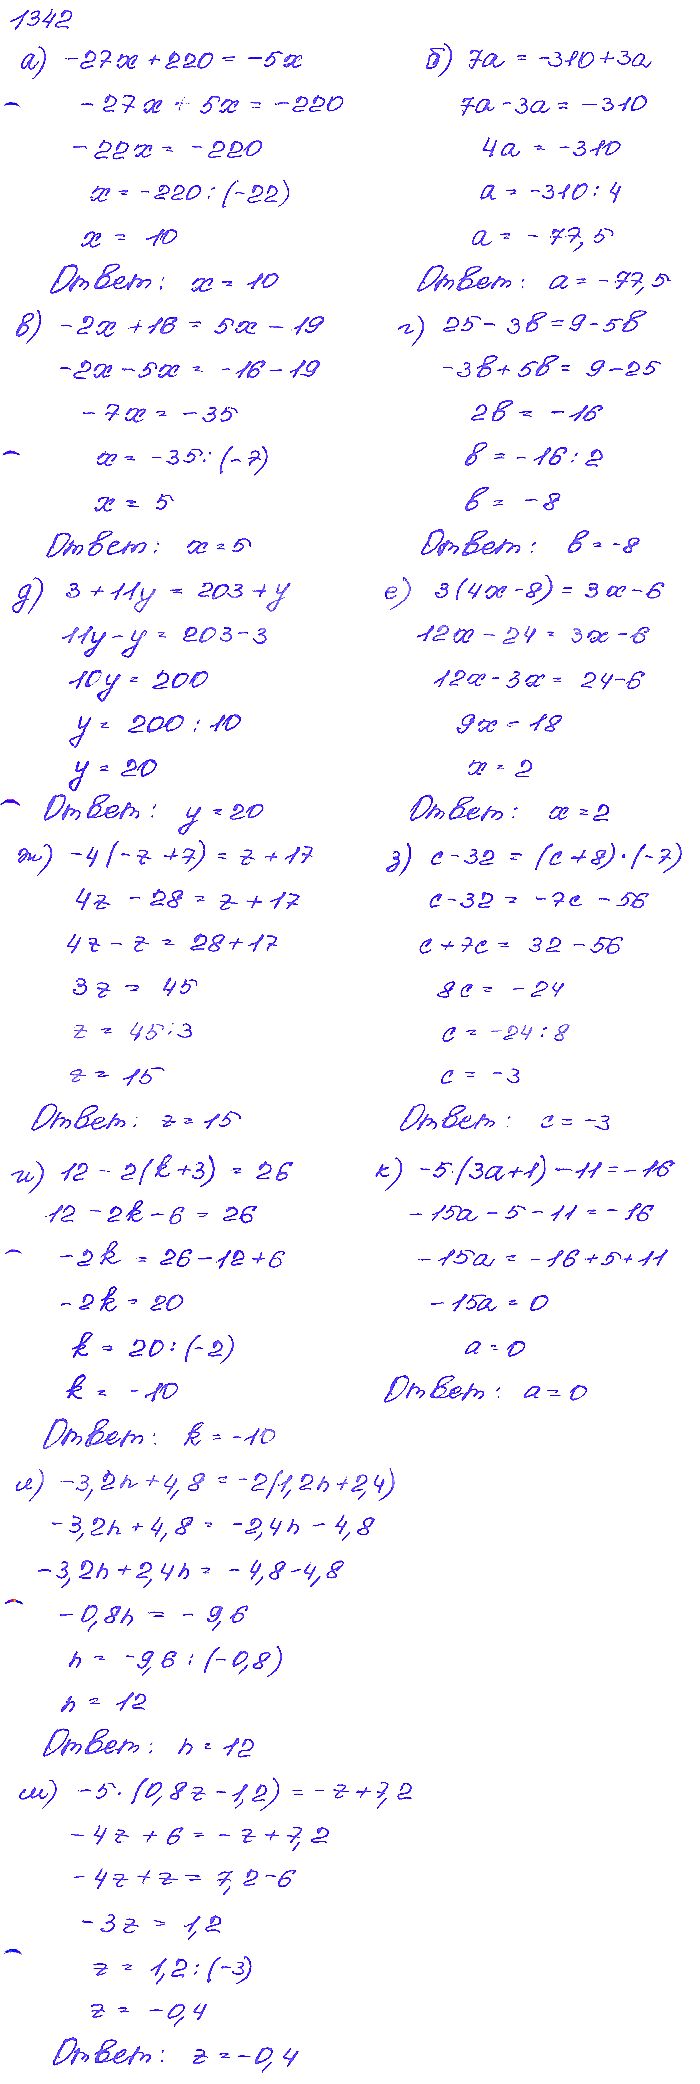 1342
а) -27x + 220 = -5x
-27x + 5x = -220
-22x = -220
x = -220 : (-22)
x = 10
Ответ: x = 10
б) 7a = -310 + 3a
7a - 3a = -310
4a = -310
a = -310 : 4
a = -77,5
Ответ: a = -77,5
в) -2x + 16 = 5x - 19
-2x - 5x = -16 - 19
-7x = -35
x = -35 : (-7)
x = 5
Ответ: x = 5
г) 25 - 3b = 9 - 5b
-3b + 5b = 9 - 25
2b = -16
b = -16 : 2
b = -8
Ответ: b = -8
д) 3 + 11y = 203 + y
11y - y = 203 - 3
10y = 200
y = 200 : 10
y = 20
Ответ: y = 20
е) 3(4x - 8) = 3x - 6
12x - 24 = 3x - 6
12x - 3x = 24 - 6
9x = 18
x = 2
Ответ: x = 2
ж) -4(-z + 7) = z + 17
4z - 28 = z + 17
4z - z = 28 + 17
3z = 45
z = 45 : 3
z = 15
Ответ: z = 15
з) c - 32 = (c + 8) · (-7)
c - 32 = -7c - 56
c + 7c = 32 - 56
8c = -24
c = -24 : 8
c = -3
Ответ: c = -3
и) 12 - 2(k + 3) = 26
12 - 2k - 6 = 26
-2k = 26 - 12 + 6
-2k = 20
k = 20 : (-2)
k = -10
Ответ: k = -10
к) -5 · (3a + 1) - 11 = -16
-15a - 5 - 11 = -16
-15a = -16 + 5 + 11
-15a = 0
a = 0
Ответ: a = 0
л) -3,2n + 4,8 = -2(1,2n + 2,4)
-3,2n + 4,8 = -2,4n - 4,8
-3,2n + 2,4n = -4,8 - 4,8
-0,8n = -9,6
n = -9,6 : (-0,8)
n = 12
Ответ: n = 12
м) -5 · (0,8z - 1,2) = -z + 7,2
-4z + 6 = -z + 7,2
-4z + z = 7,2 - 6
-3z = 1,2
z = 1,2 : (-3)
z = -0,4
Ответ: z = -0,4